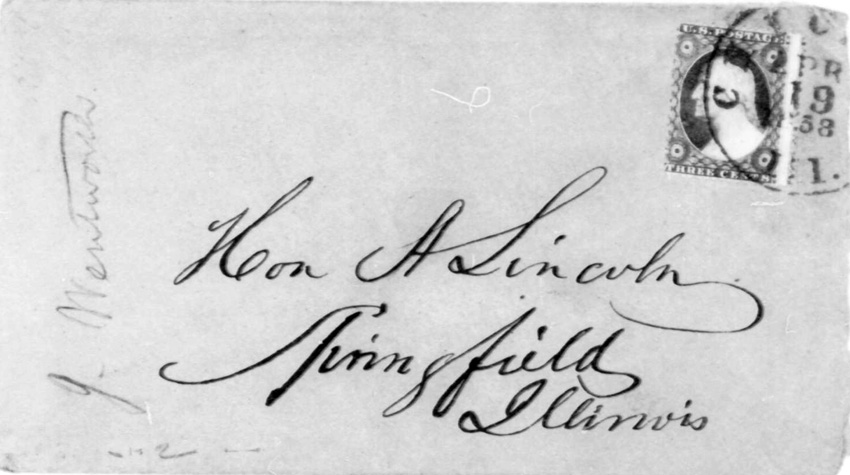 U.S. POSTAGE
THREE CENTS
APR
19
58
J. Wentworth.
Hon A Lincoln
Springfield
Illinois